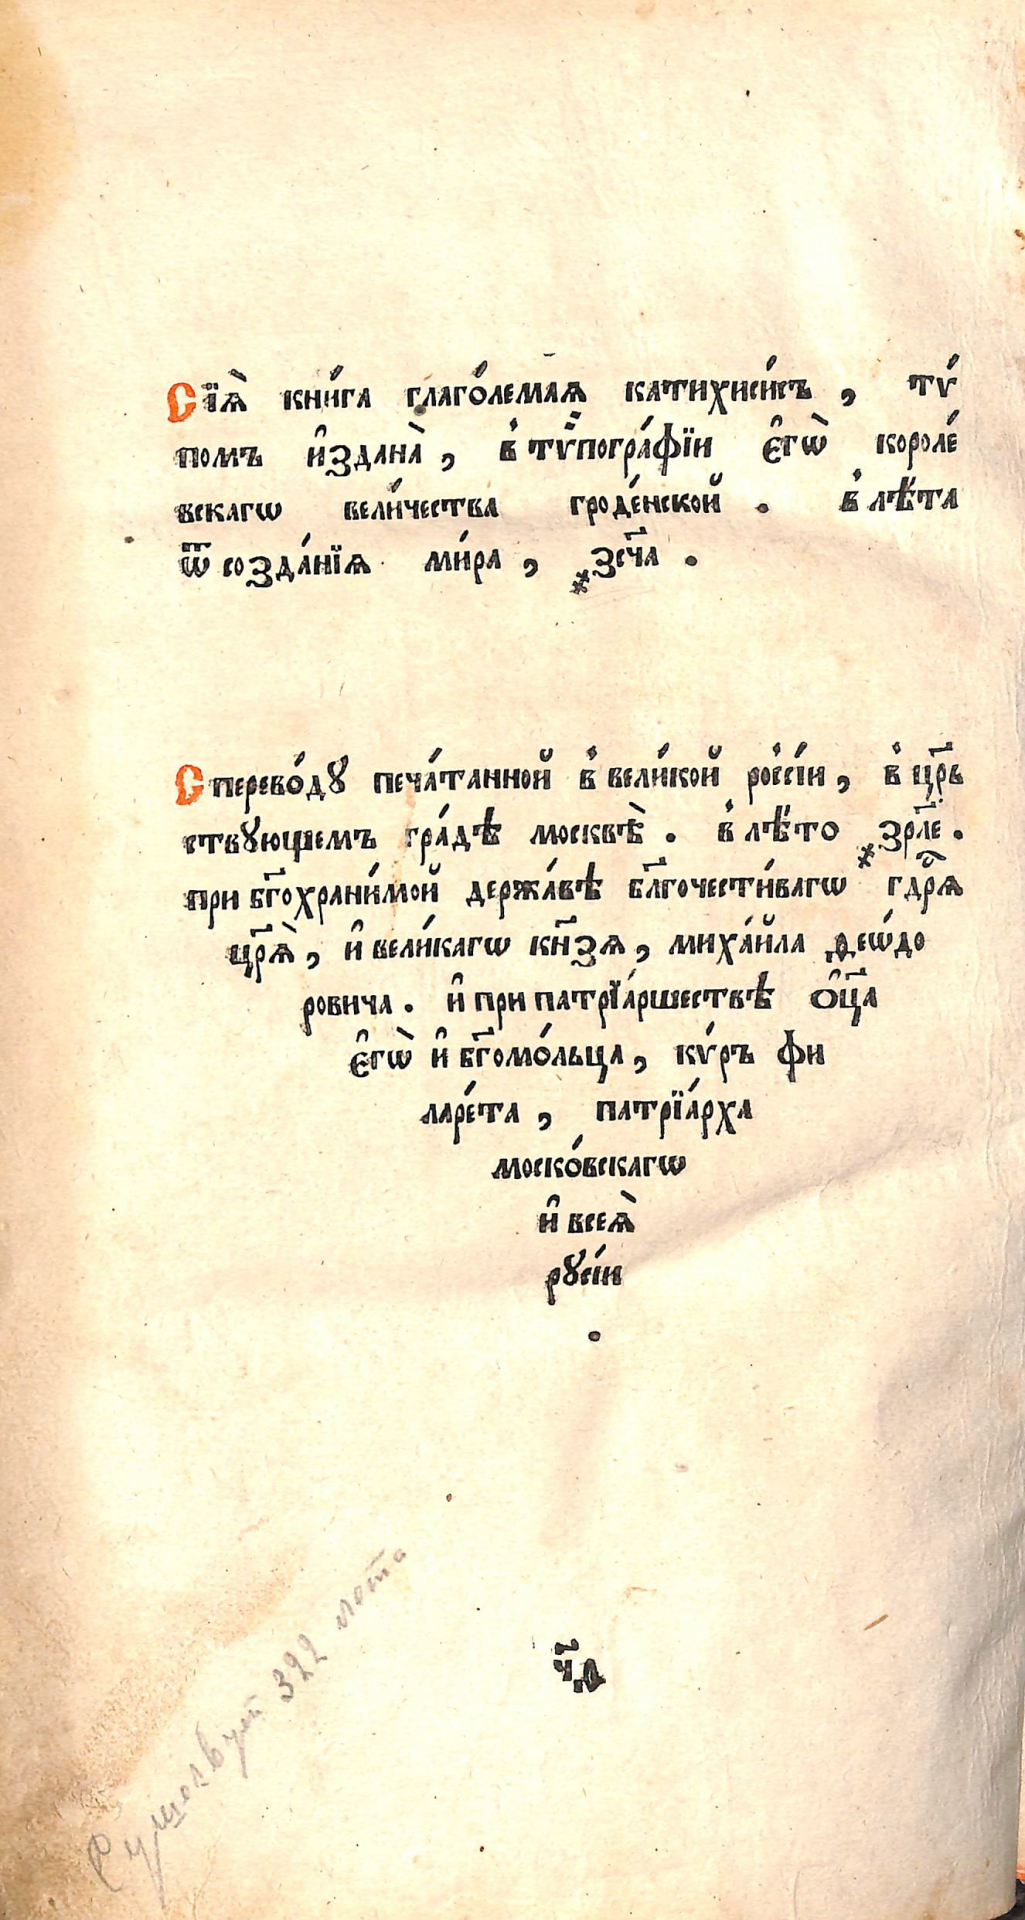 Сїѧ̀ кни́га глаго́лемаѧ катихиси́съ, тѵ́
помъ и҆здана̀, в҆ тѷпогра́фїи є҆гѡ̀ короле́
вскагѡ вели́чества гроде́нской. в҆ лѣ́та
ѿ созда́нїѧ ми́ра, ҂зс҃ча.
С перево́дꙋ печа́танной в҆ вели́кой рос҆сі́и, в҆ цр҃ь
ствꙋющемъ гра́дѣ москвѣ̀. в҆ лѣ́то ҂зрл҃е.
при бг҃охрани́мой держа́вѣ бл҃гочести́вагѡ гдⷭ҇рѧ
цр҃ѧ̀, и҆ вели́кагѡ кн҃зѧ, миха́йла ѳеѡ́до
ровича. и҆ при патрїа́ршествѣ о҆ц҃а
є҆гѡ̀ и҆ бг҃омо́льца, кѵ́ръ фи
ларе́та, патрїа́рха
моско́вскагѡ
и҆ всеѧ̀
рꙋсі́и
.
322 лета